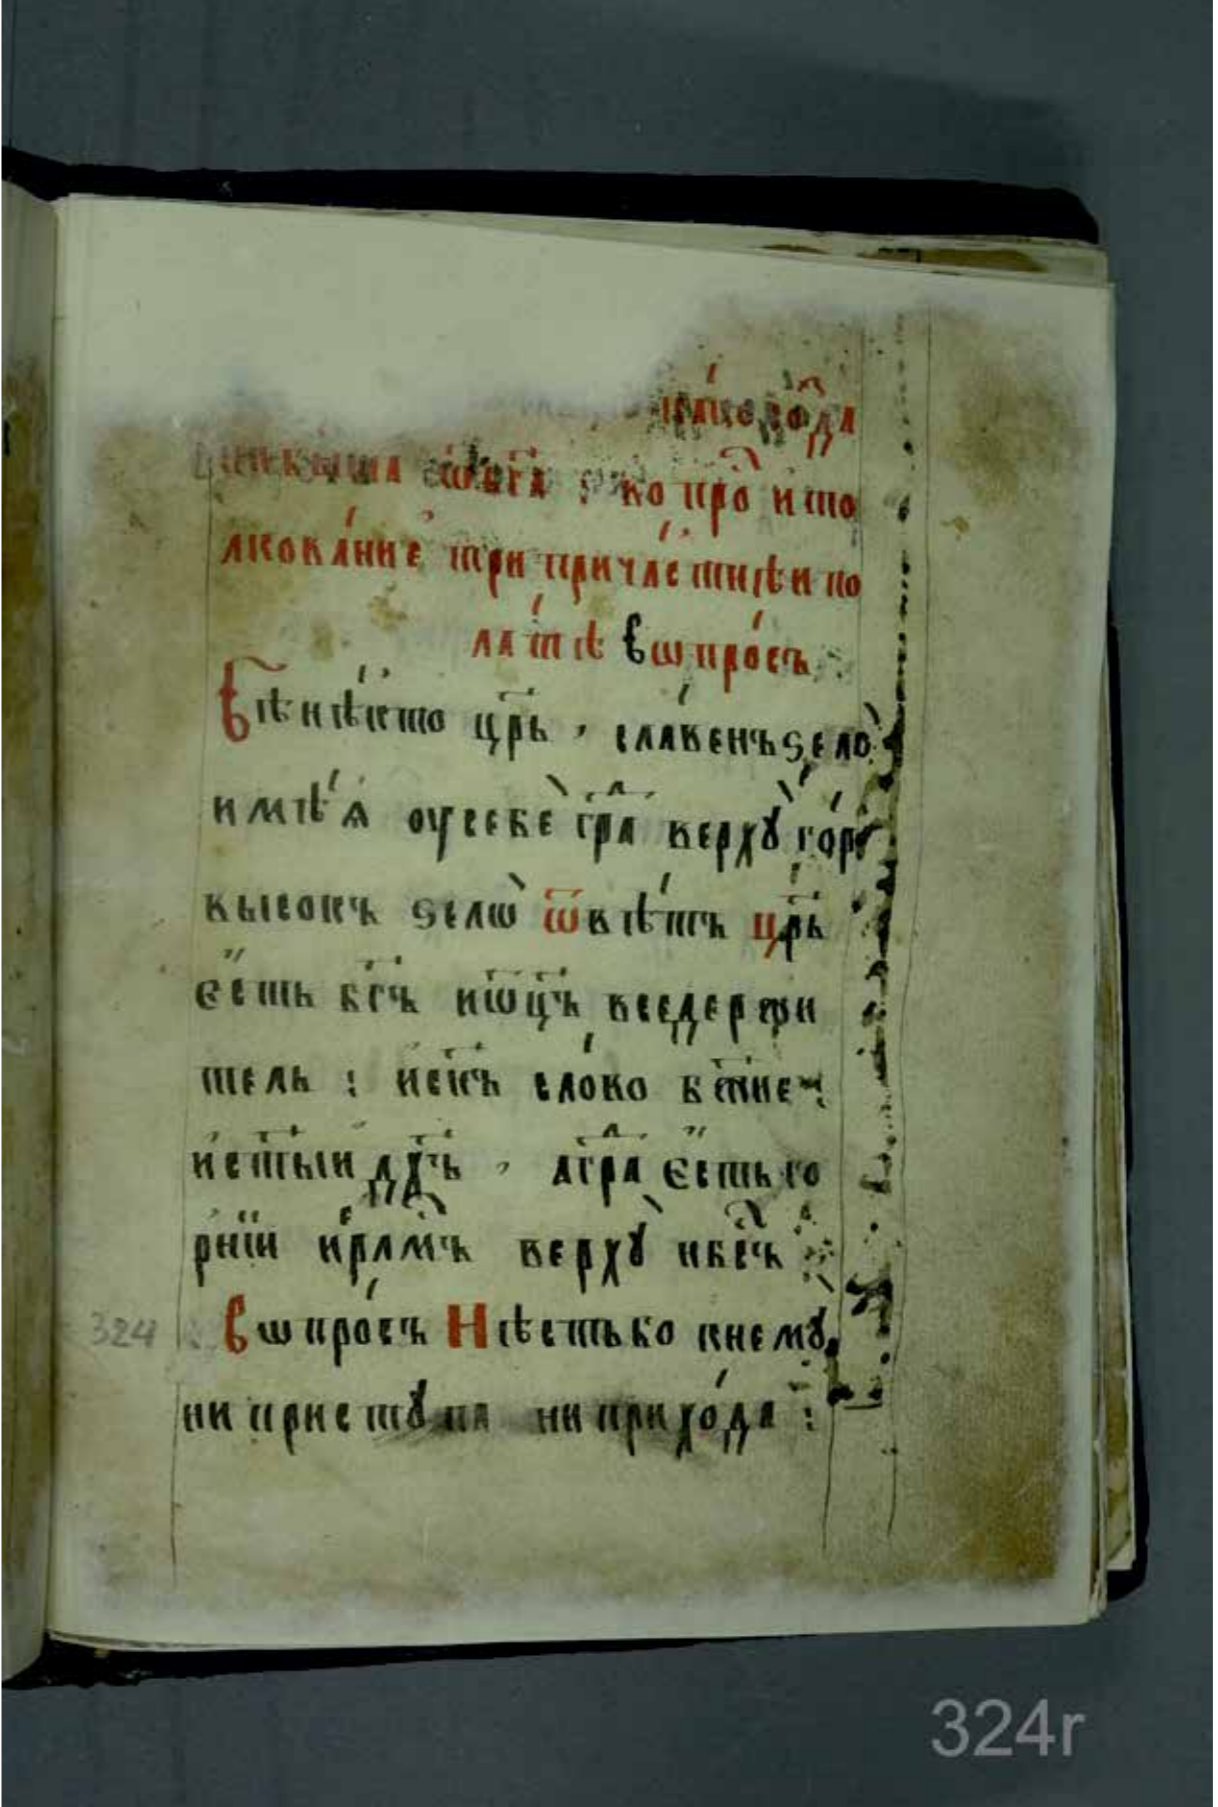 ѡ҃ бг҃а : ко про и то
лкова́ние три прича́стнѣи по
ла́тѣ вѡпро́съ
Бѣ нѣ́кто цр҃ь , сла́венъ ѕело̀
имѣ́ѧ оусебѐ гра҃ верхꙋ̀ го́р
высокъ ѕелѡ̀ ѿвѣ́тъ цр҃ь
є҆сть бг҃ъ иѡц҃ъ вседержи
тель : исн҃ъ сло́во бж҃ие ~:
ист҃ыи дх҃ъ , агра҃ є҆сть го
рнїи иерл҃мъ верхꙋ̀ нб҃съ
324
вѡпро́съ Нѣстько кнемꙋ̀
ни пристꙋпа ни прихо́да :
324r